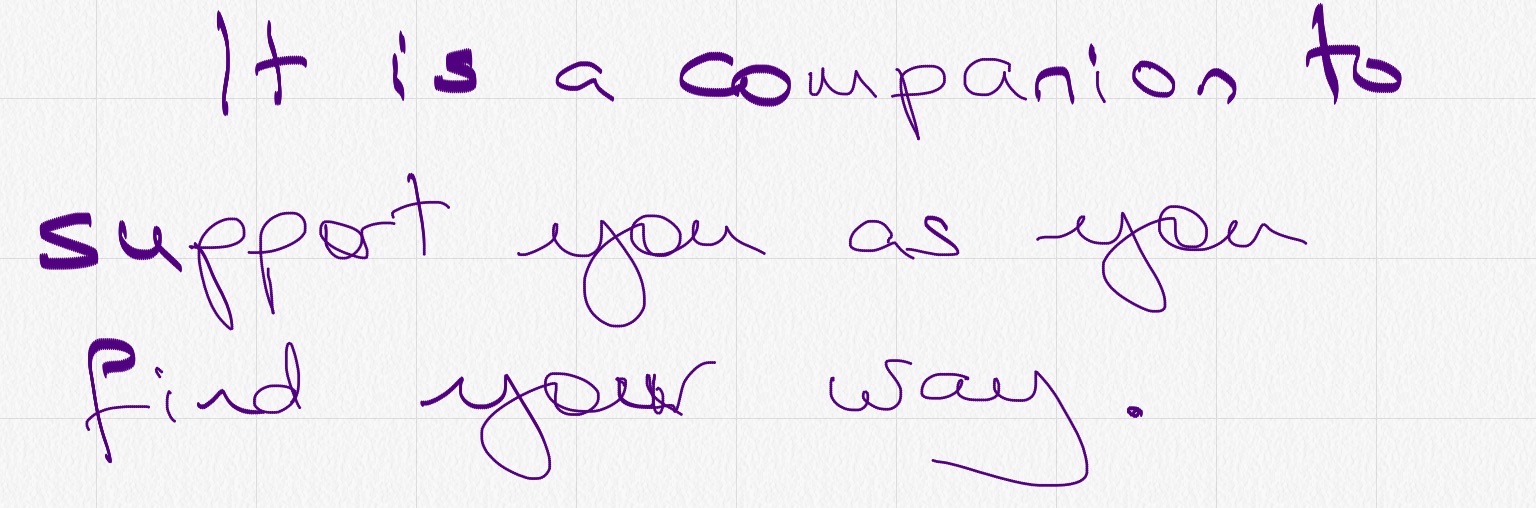 It is a companion to
support you as you
find your way.